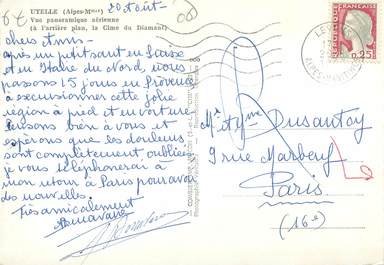 UTELLE (Alpes-Mmes)
Vue panoramique aérienne
(A l'arrière plan, la Cime du Diamant)
20 Août-
chers Amis-
après un petit saut en Suisse
et en Italie du Nord, nous
passons 15 jours en Provence
à excursionner cette jolie
région à pied et en voiture
Pensons bien à vous et
espérons que les douleurs
sont complètement oubliées
je vous téléphonerai à
mon retour à Paris pour avoir
des nouvelles.
Très amicalement
REPUBLIQUE FRANÇAISE
0,25
ALPES-MARITIMES
Mr et Mme Dusantoy
9 rue Marbeuf
Paris
(16e)